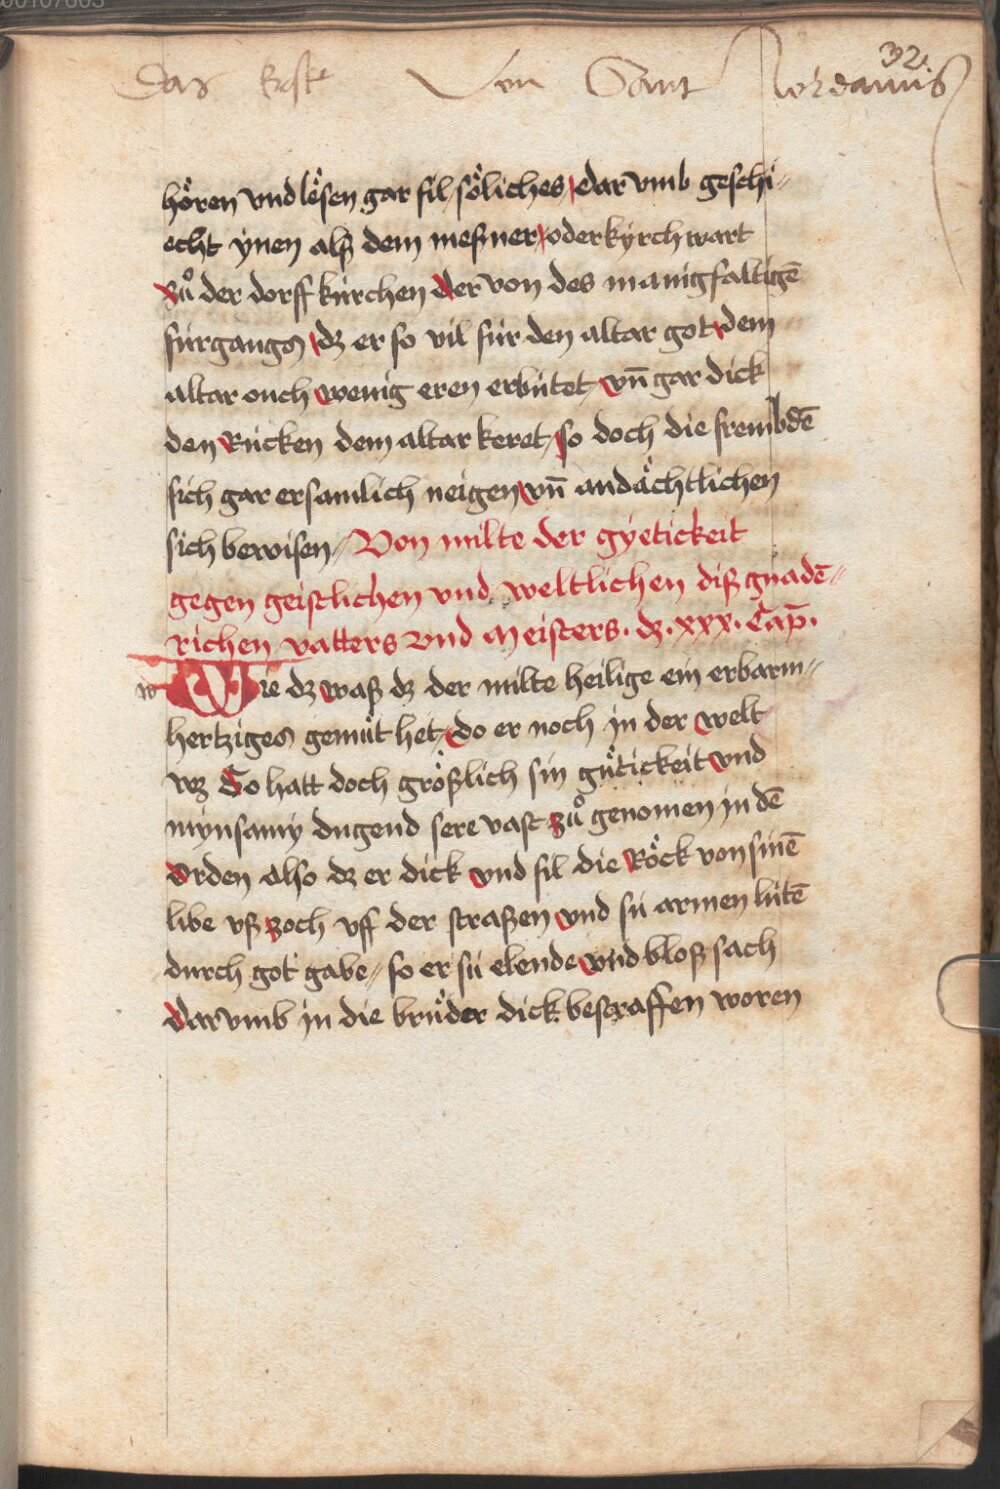 00107603
32.
Das Erste Von Sant Jordanus
hören vnd lësen gar fil söliches / dar vmb geschi⸗
echt ynen alß dem meßner / oder kyrchwart
zuͦ der dorff kirchen der von des manigfaltigē
fürgangs / dz er so vil für den altar got / dem
altar ouch wenig eren erbütet / vn̄ gar dick
den Rücken dem altar keret / so doch die frembdē
sich gar ersamlich neigen / vn̄ andächtlichen
sich bewisen / Von milte der gyetickeit
gegen geistlichen vnd weltlichen diß gnadē⸗
richen vatters vnd Meisters. dz .xxx. Cap̄.
w
Wie dz waß dz der milte heilige ein erbarm⸗
hertziges gemüt het / do er noch jn der welt
wz So hatt doch größlich sin gütickeit vnd
mynsamy dugend sere vast zuͦ genomen jn dē
orden also dz er dick vnd fil die Röck von sinē
libe vß zoch vff der straßen vnd sü armen lütē
durch got gabe / so er sü elende vnd bloß sach
Dar vmb jn die brüder dick bestraffen woren